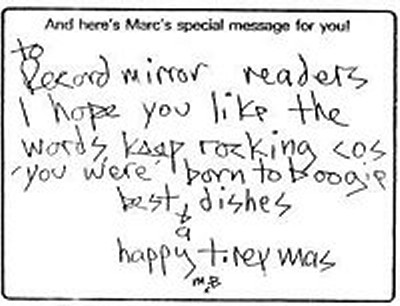 And here's Marc's special message for you!
to
Record mirror readers
I hope you like the
words, keep rocking cos
'you were' born to boogie
best dishes
&
a
happy t.rexmas
M.B